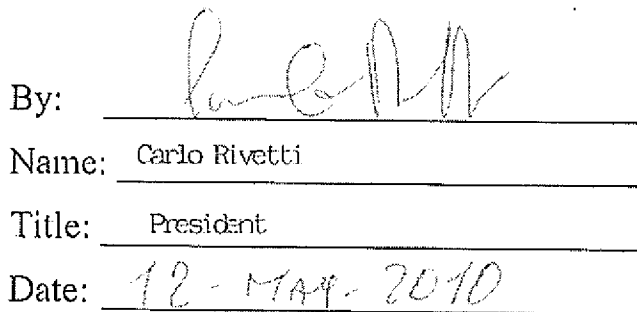 By:
Name: Carlo Rivetti
Title: President
Date: 12 - MAR - 2010